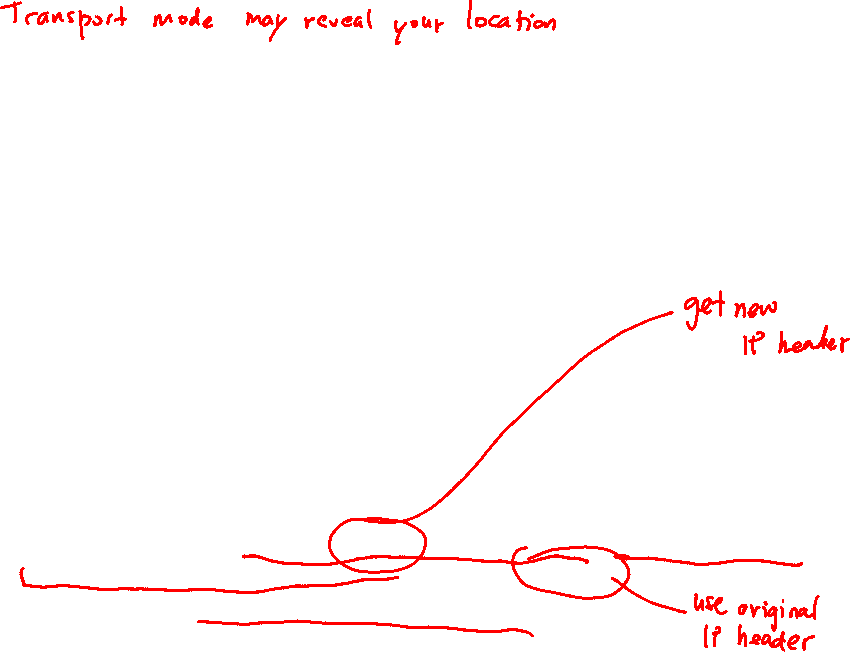 Transport mode may reveal your location
get new
IP header
use original
IP header